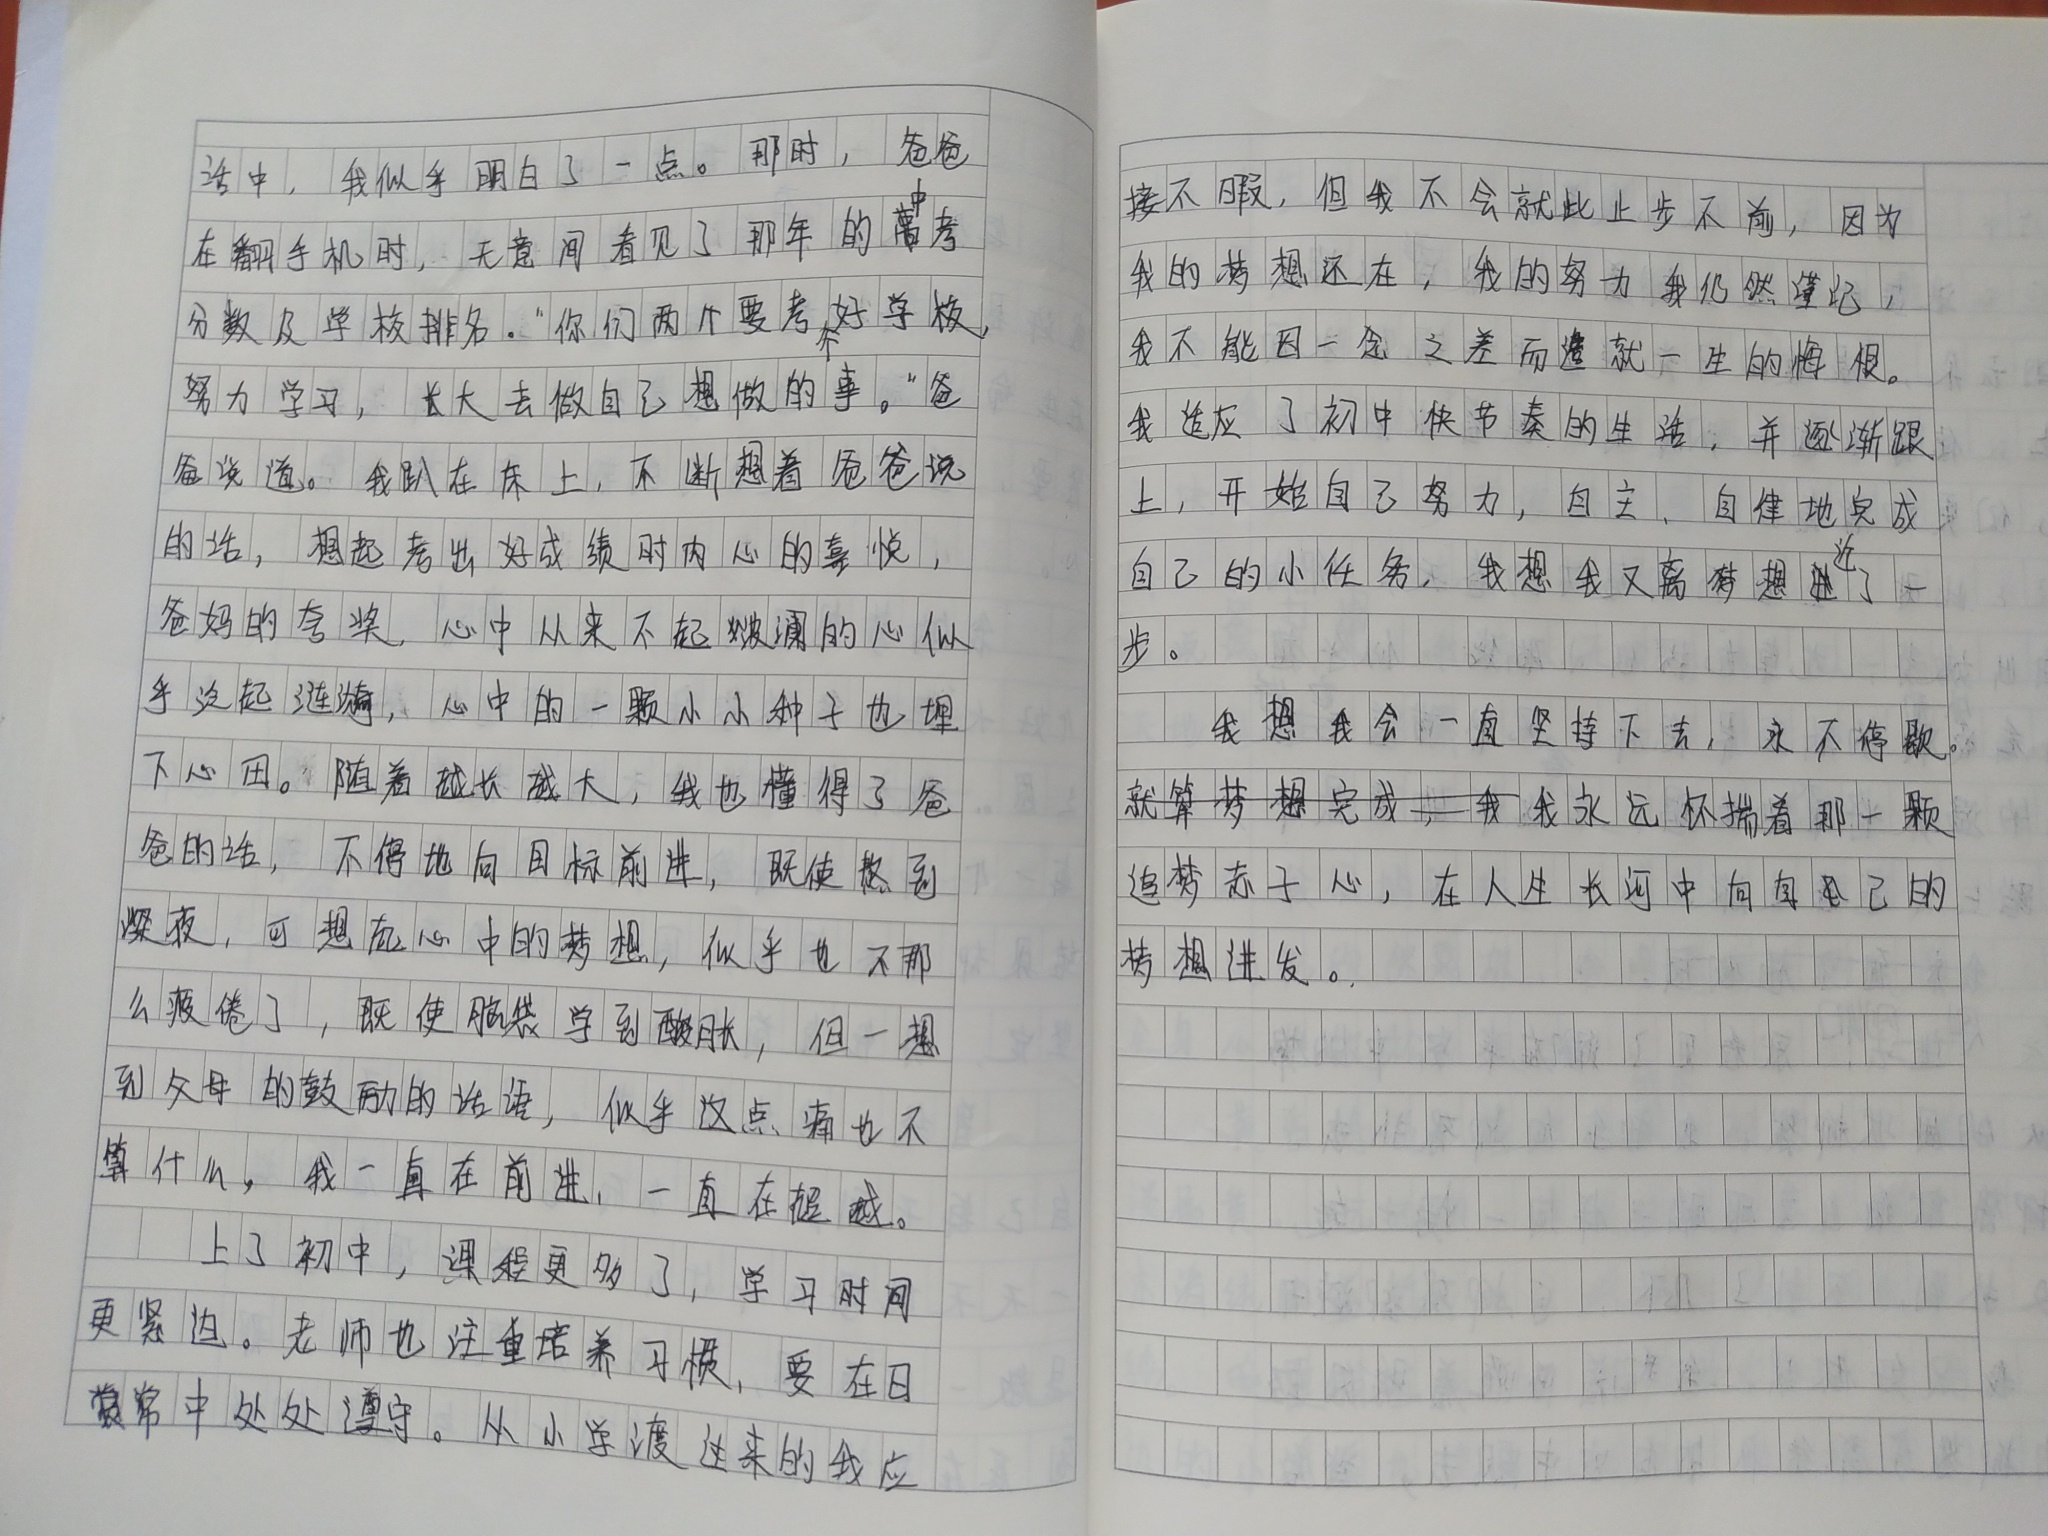 话中，我似乎明白了一点。那时，爸爸
在翻手机时，无意间看见了那年的中考
分数及学校排名。“你们两个要考个好学校，
努力学习，长大去做自己想做的事。”爸
爸说道。我趴在床上，不断想着爸爸说
的话，想起考出好成绩时内心的喜悦，
爸妈的夸奖，心中从来不起波澜的心似
乎泛起涟漪，心中的一颗小小种子也埋
下心田。随着越长越大，我也懂得了爸
爸的话，不停地向目标前进，既使熬到
深夜，可想起心中的梦想，似乎也不那
么疲倦了，既使脑袋学到酸胀，但一想
到父母的鼓励的话语，似乎这点痛也不
算什么，我一直在前进，一直在超越。
上了初中，课程更多了，学习时间
更紧迫。老师也注重培养习惯，要在日
常中处处遵守。从小学渡过来的我应
接不暇，但我不会就此止步不前，因为
我的梦想还在，我的努力我仍然谨记，
我不能因一念之差而遭就一生的悔恨。
我适应了初中快节奏的生活，并逐渐跟
上，开始自己努力，自主、自律地完成
自己的小任务，我想我又离梦想近了一
步。
我想我会一直坚持下去，永不停歇。
就算梦想完成，我我永远怀揣着那一颗
追梦赤子心，在人生长河中向自己的
梦想进发。